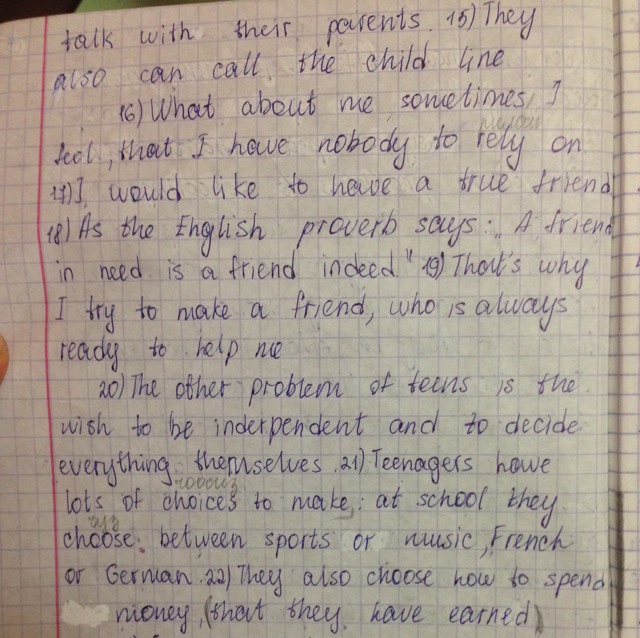 talk with their parents. 15) They
also can call the child line
16) What about me sometimes I
feel, that I have nobody to rely on
17) I would like to have a true friend
18) As the English proverb says: „A friend
in need is a friend indeed" 19) That's why
I try to make a friend, who is always
ready to help me
20) The other problem of teens is the
wish to be inderpendent and to decide
everything themselves. 21) Teenagers have
lots of choices to make: at school they
choose: between sports or music, French
or German. 22) They also choose how to spend
money, (that they have earned)